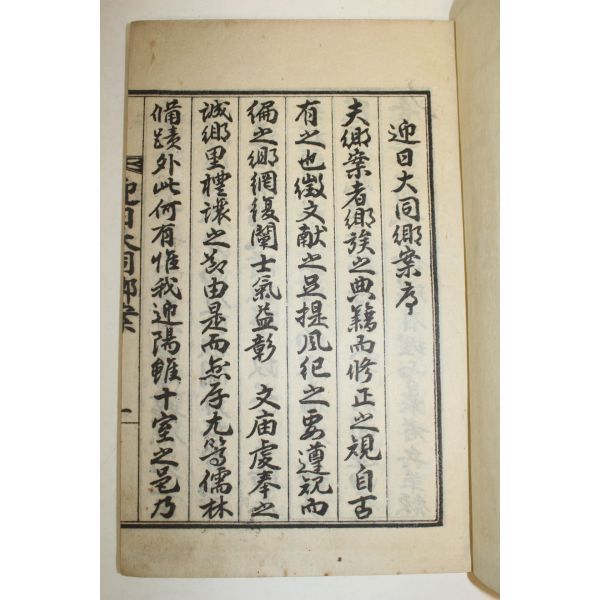 迎日大同鄉案序
夫鄉案者鄉族之典籍而修正之規自古
有之也徵文献之足提風紀之要遵規而
編之鄉網復闡士氣益彰 文庙虔奉之
誠鄉里禮讓之節由是而無存尤篤儒林
備蹟外此何有惟我迎陽雖十室之邑乃
迎日大同鄉案 一